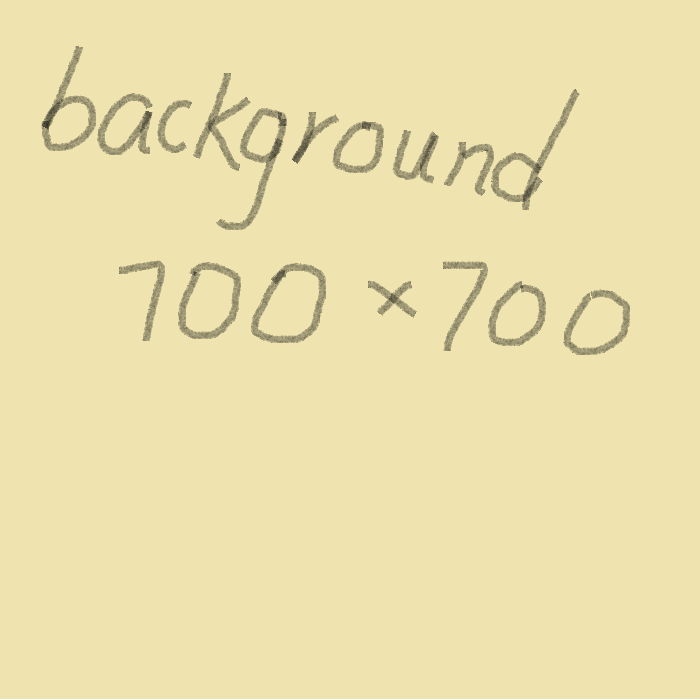 background
700 × 700